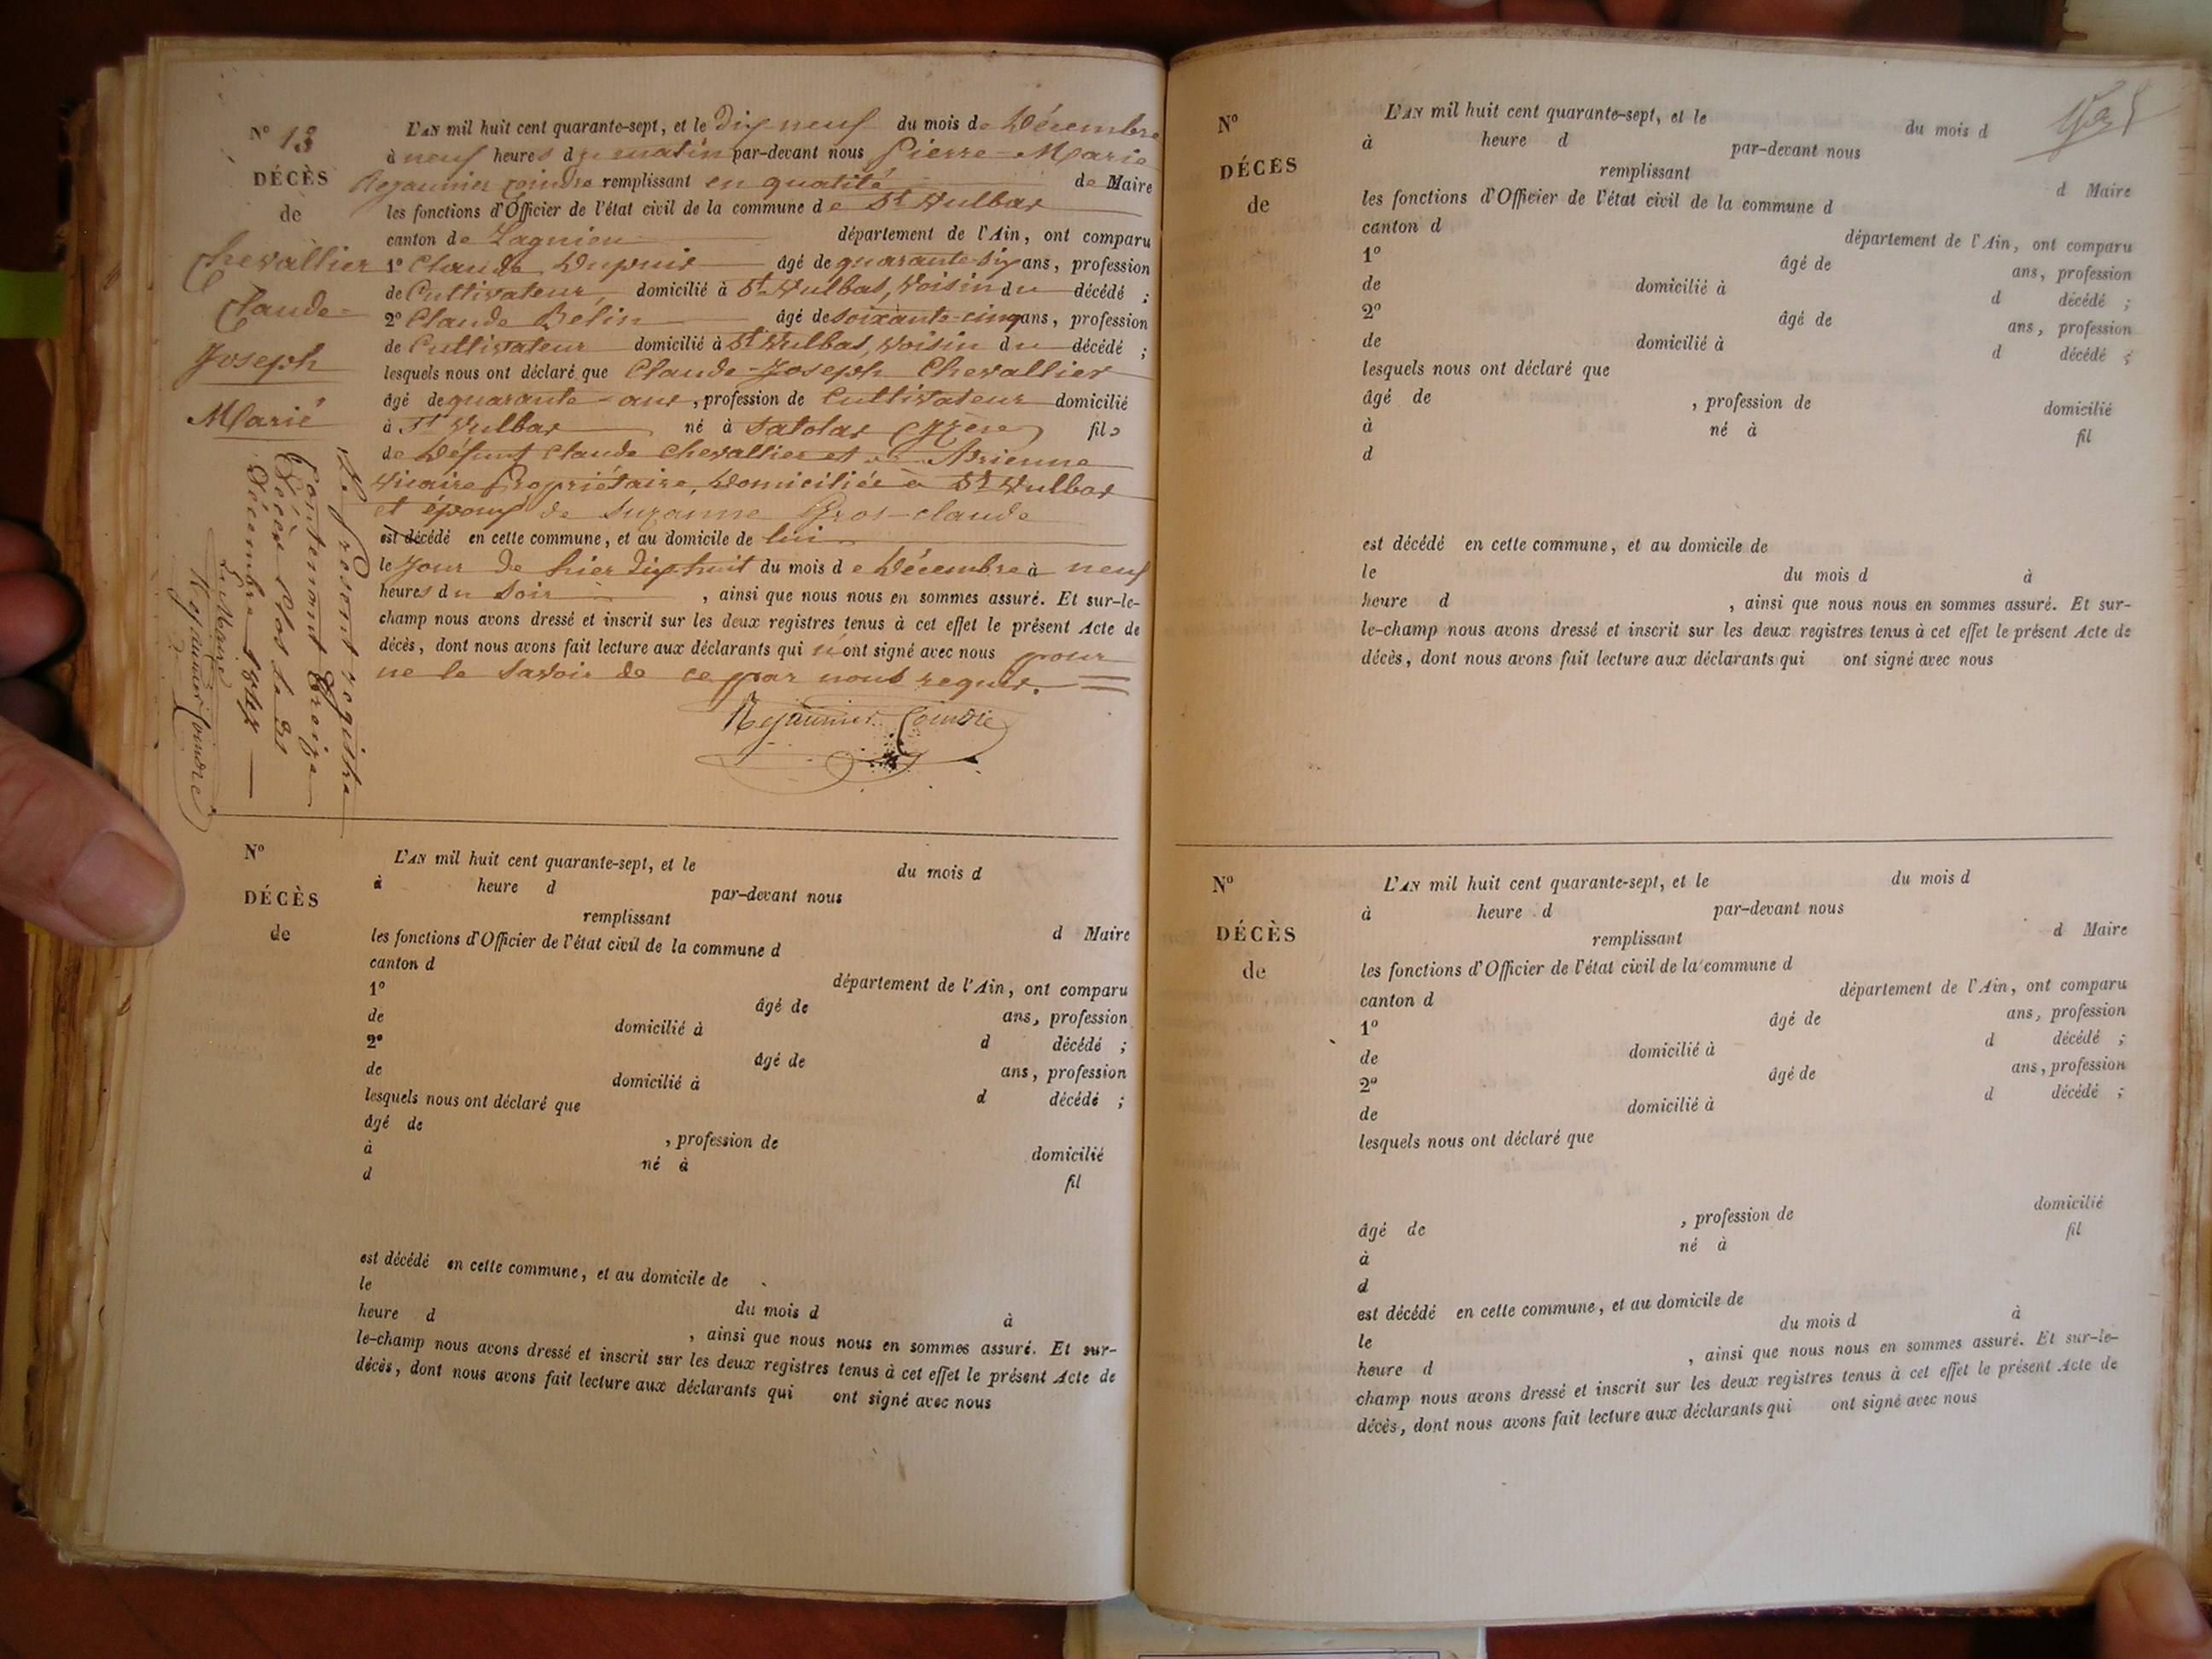 N° 13
DÉCÈS
de
Chevallier
Claude-
Joseph
Marié
L'AN mil huit cent quarante-sept, et le dix neuf du mois de Décembre
à neuf heures du matin par-devant nous Pierre-Marie
Rejaunier Coindre remplissant en qualité de Maire
les fonctions d'Officier de l'état civil de la commune de St Vulbas
canton de Lagnieu département de l'Ain, ont comparu
1° Claude Dupuis âgé de quarante-six ans, profession
de Cultivateur, domicilié à St Vulbas, voisin du décédé ;
2° Claude Belin âgé de soixante-cinq ans, profession
de Cultivateur domicilié à St Vulbas, voisin du décédé ;
lesquels nous ont déclaré que Claude-Joseph Chevallier
âgé de quarante-ans, profession de Cultivateur domicilié
à St Vulbas né à Satolas (Isère) fils
de Défunt Claude Chevallier et Adrienne
Vicaire Propriétaire, domiciliée à St Vulbas
et époux de Suzanne Gros-claude
est décédé en cette commune, et au domicile de lui
le jour de hier dix huit du mois de Décembre à neuf
heures du soir, ainsi que nous nous en sommes assuré. Et sur-le-
champ nous avons dressé et inscrit sur les deux registres tenus à cet effet le présent Acte de
décès, dont nous avons fait lecture aux déclarants qui n'ont signé avec nous pour
ne le savoir de ce par nous requis.
Rejaunier Coindre
Le présent registre
Contenant treize
Décès clos le 31
Décembre 1847
Le Maire
Rejaunier Coindre
N°
DÉCÈS
de
L'AN mil huit cent quarante-sept, et le du mois d
à heure d par-devant nous
remplissant d Maire
les fonctions d'Officier de l'état civil de la commune d
canton d département de l'Ain, ont comparu
1° âgé de ans, profession
de domicilié à d décédé ;
2° âgé de ans, profession
de domicilié à d décédé ;
lesquels nous ont déclaré que
âgé de , profession de domicilié
à né à fil
d
est décédé en cette commune, et au domicile de
le du mois d à
heure d , ainsi que nous nous en sommes assuré. Et sur-
le-champ nous avons dressé et inscrit sur les deux registres tenus à cet effet le présent Acte de
décès, dont nous avons fait lecture aux déclarants qui ont signé avec nous
N°
DÉCÈS
de
L'AN mil huit cent quarante-sept, et le du mois d
à heure d par-devant nous
remplissant d Maire
les fonctions d'Officier de l'état civil de la commune d
canton d département de l'Ain, ont comparu
1° âgé de ans, profession
de domicilié à d décédé ;
2° âgé de ans, profession
de domicilié à d décédé ;
lesquels nous ont déclaré que
âgé de , profession de domicilié
à né à fil
d
est décédé en cette commune, et au domicile de
le du mois d à
heure d , ainsi que nous nous en sommes assuré. Et sur-
le-champ nous avons dressé et inscrit sur les deux registres tenus à cet effet le présent Acte de
décès, dont nous avons fait lecture aux déclarants qui ont signé avec nous
N°
DÉCÈS
de
L'AN mil huit cent quarante-sept, et le du mois d
à heure d par-devant nous
remplissant d Maire
les fonctions d'Officier de l'état civil de la commune d
canton d département de l'Ain, ont comparu
1° âgé de ans, profession
de domicilié à d décédé ;
2° âgé de ans, profession
de domicilié à d décédé ;
lesquels nous ont déclaré que
âgé de , profession de domicilié
à né à fil
d
est décédé en cette commune, et au domicile de
le du mois d à
heure d , ainsi que nous nous en sommes assuré. Et sur-le-
champ nous avons dressé et inscrit sur les deux registres tenus à cet effet le présent Acte de
décès, dont nous avons fait lecture aux déclarants qui ont signé avec nous